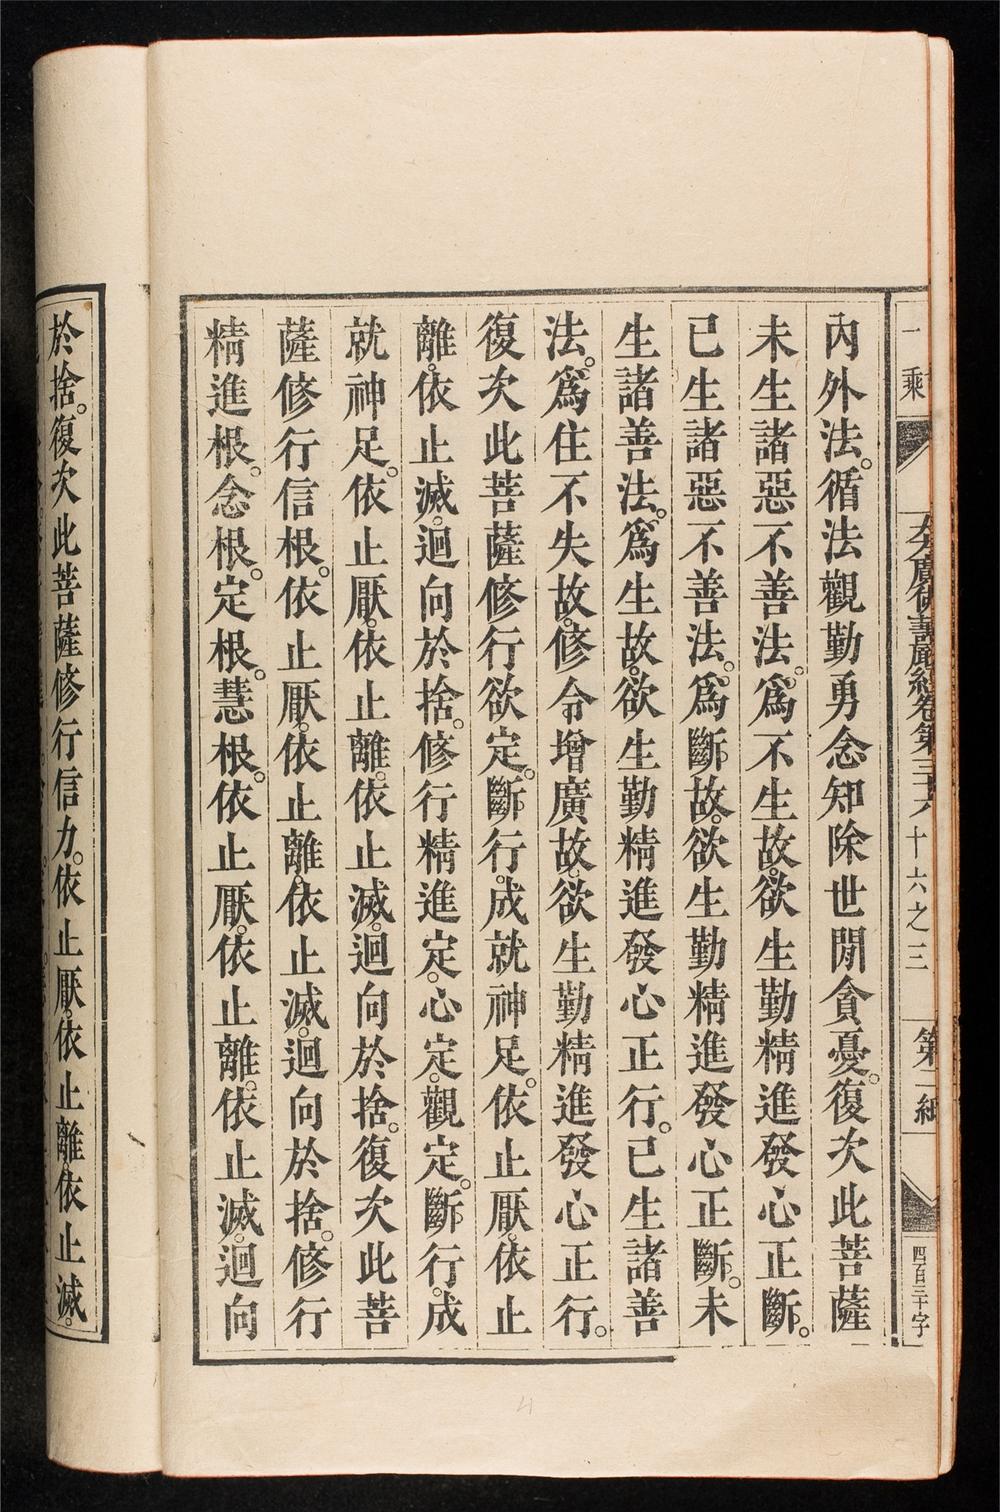 一乘
大方廣佛華嚴經卷第三十六
十六之三
第一紙
四百三十字
內外法。循法觀勤勇念知除世閒貪憂。復次此菩薩
未生諸惡不善法。爲不生故。欲生勤精進發心正斷。
已生諸惡不善法。爲斷故。欲生勤精進發心正斷。未
生諸善法。爲生故。欲生勤精進發心正行。已生諸善
法。爲住不失故。修令增廣故。欲生勤精進發心正行。
復次此菩薩修行欲定。斷行。成就神足。依止厭。依止
離。依止滅。迴向於捨。修行精進定。心定。觀定。斷行。成
就神足。依止厭。依止離。依止滅。迴向於捨。復次此菩
薩修行信根。依止厭。依止離。依止滅。迴向於捨。修行
精進根。念根。定根。慧根。依止厭。依止離。依止滅。迴向
於捨。復次此菩薩修行信力。依止厭。依止離。依止滅。